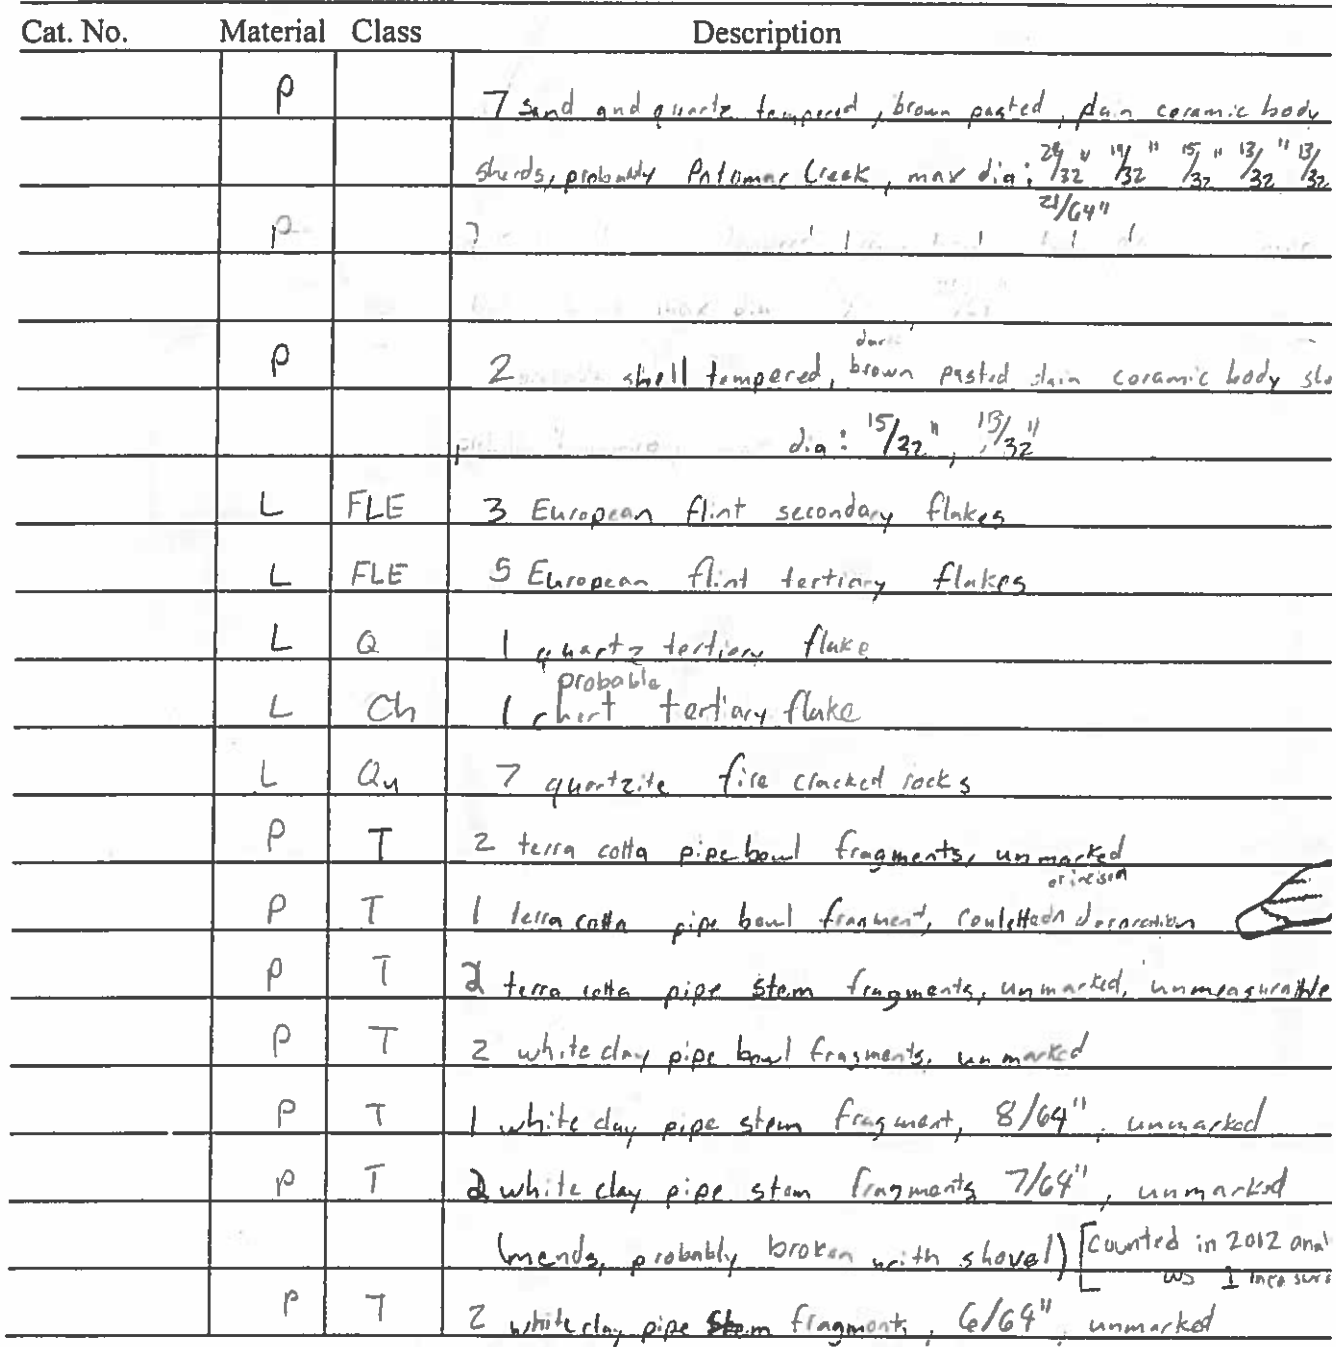 Cat. No. Material Class Description
P 7 sand and quartz tempered, brown pasted, plain ceramic body
sherds, probably Potomac Creek, max dia: 28/32" 19/32" 15/32" 13/32" 13/32
21/64"
P
dark
P 2 shell tempered, brown pasted plain ceramic body
dia: 15/32", 13/32"
L FLE 3 European flint secondary flakes
L FLE 5 European flint tertiary flakes
L Q 1 quartz tertiary flake
probable
L Ch 1 chert tertiary flake
L Qu 7 quartzite fire cracked rocks
P T 2 terra cotta pipe bowl fragments, unmarked
or incised
P T 1 terra cotta pipe bowl fragment, rouletted decoration
P T 2 terra cotta pipe stem fragments, unmarked, unmeasurable
P T 2 white clay pipe bowl fragments, unmarked
P T 1 white clay pipe stem fragment, 8/64", unmarked
P T 2 white clay pipe stem fragments 7/64", unmarked
(mends, probably broken with shovel) [counted in 2012
P T 2 white clay pipe stem fragments, 6/64", unmarked